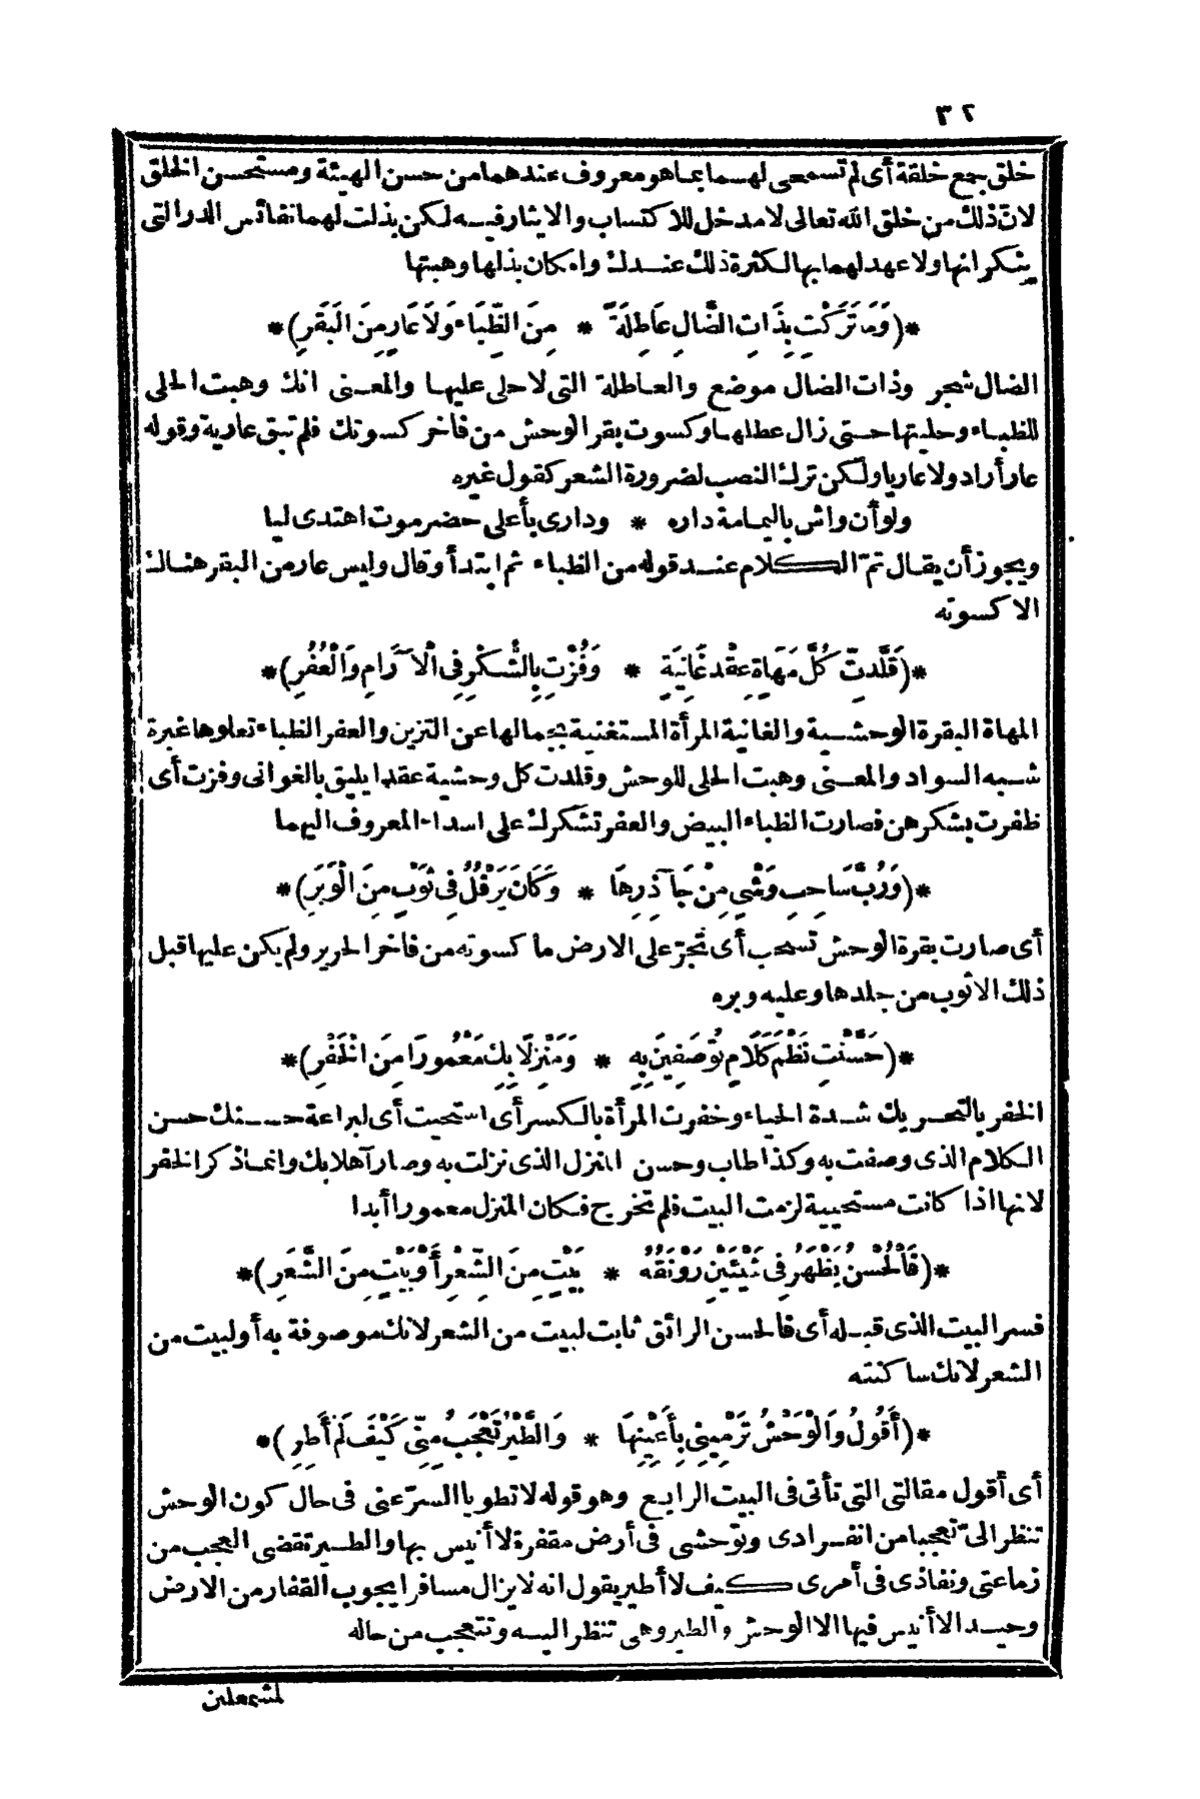 ٣٢
خلق جمع خلقة أى لم تسمعى لهما بما هو معروف عندهما من حسن الهيئة ومستحسن الخلق
لانّ ذلك من خلق الله تعالى لا مدخل للاكتساب والايثار فيه لكن بذلت لهما نفائس الدر التى
ينكرانها ولا عهد لهما بها لكثرة ذلك عندك وامكان بذلها وهبتها
*(وَمَا تَرَكْتِ بِذَاتِ الضَّالِ عَاطِلَةً * مِنَ الظِّبَاءِ وَلَا عَارٍ مِنَ الْبَقَرِ)*
الضال شجر وذات الضال موضع والعاطلة التى لا حلى عليها والمعنى انك وهبت الحلى
للظباء وحليتها حتى زال عطلها وكسوت بقر الوحش من فاخر كسوتك فلم تبق عارية وقوله
عار أراد ولا عاريا ولكن ترك النصب لضرورة الشعر كقول غيره
ولو أن واش باليمامة داره * ودارى بأعلى حضرموت اهتدى ليا
ويجوز أن يقال تمّ الكلام عند قوله من الظباء ثم ابتدأ وقال وليس عار من البقر هنالك
الا كسوته
*(قَلَّدتِّ كُلَّ مَهَاةٍ عِقْدَ غَانِيَةٍ * وَفُزْتِ بِالشُّكْرِ فِى الْآرَامِ وَالْعُفُرِ)*
المهاة البقرة الوحشية والغانية المرأة المستغنية بجمالها عن التزين والعفر الظباء تعلوها غبرة
شبه السواد والمعنى وهبت الحلى للوحش وقلدت كل وحشية عقدا يليق بالغوانى وفزت أى
ظفرت بشكرهن فصارت الظباء البيض والعفر تشكرك على اسداء المعروف اليهما
*(وَرُبَّ سَاحِبِ وَشْىٍ مِنْ جَآذِرِهَا * وَكَانَ يَرْفُلُ فِى ثَوْبٍ مِنَ الْوَبَرِ)*
أى صارت بقرة الوحش تسحب أى تجرّ على الارض ما كسوته من فاخر الحرير ولم يكن عليها قبل
ذلك الا ثوب من جلدها وعليه وبره
*(حَسَّنْتِ نَظْمَ كَلَامٍ تُوصَفِينَ بِهِ * وَمَنْزِلًا بِكِ مَعْمُورًا مِنَ الْخَفَرِ)*
الخفر بالتحريك شدة الحياء وخفرت المرأة بالكسر أى استحيت أى لبراعة حسنك حسن
الكلام الذى وصفت به وكذا طاب وحسن المنزل الذى نزلت به وصار آهلا بك وانما ذكر الخفر
لانها اذا كانت مستحيية لزمت البيت فلم تخرج فكان المنزل معمورا أبدا
*(فَالْحُسْنُ يَظْهَرُ فِى شَيْئَيْنِ رَوْنَقُهُ * بَيْتٍ مِنَ الشِّعْرِ أَوْ بَيْتٍ مِنَ الشَّعَرِ)*
فسر البيت الذى قبله أى فالحسن الرائق ثابت لبيت من الشعر لانك موصوفة به أو لبيت من
الشعر لانك ساكنته
*(أَقُولُ وَالْوَحْشُ تَرْمِينِى بِأَعْيُنِهَا * وَالطَّيْرُ تَعْجَبُ مِنِّى كَيْفَ لَمْ أَطِرِ)*
أى أقول مقالتى التى تأتى فى البيت الرابع وهو قوله لا تطويا السرّ عنى فى حال كون الوحش
تنظر الىّ تعجبا من انفرادى وتوّحشى فى أرض مقفرة لا أنيس بها والطير تقضى العجب من
زماعتى ونفاذى فى أمرى كيف لا أطير يقول انه لا يزال مسافرا يجوب القفار من الارض
وحيدا لا أنيس فيها الا الوحش والطير وهى تنظر اليه وتتعجب من حاله
لمشمعلين